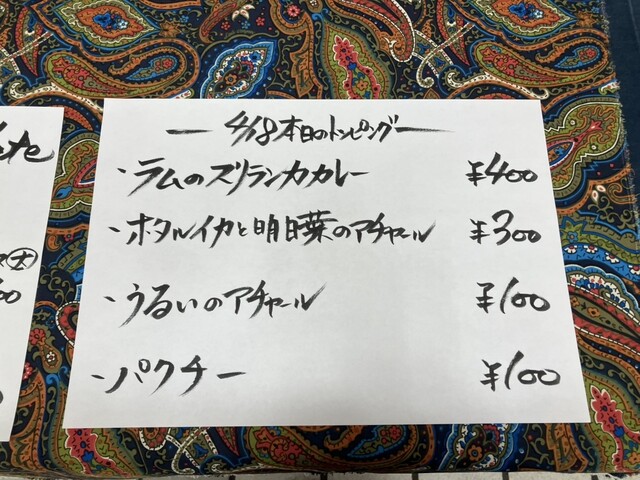 ー 4/18 本日のトッピング ー
・ラムのスリランカカレー ¥400
・ホタルイカと明日葉のアチャール ¥300
・うるいのアチャール ¥100
・パクチー ¥100